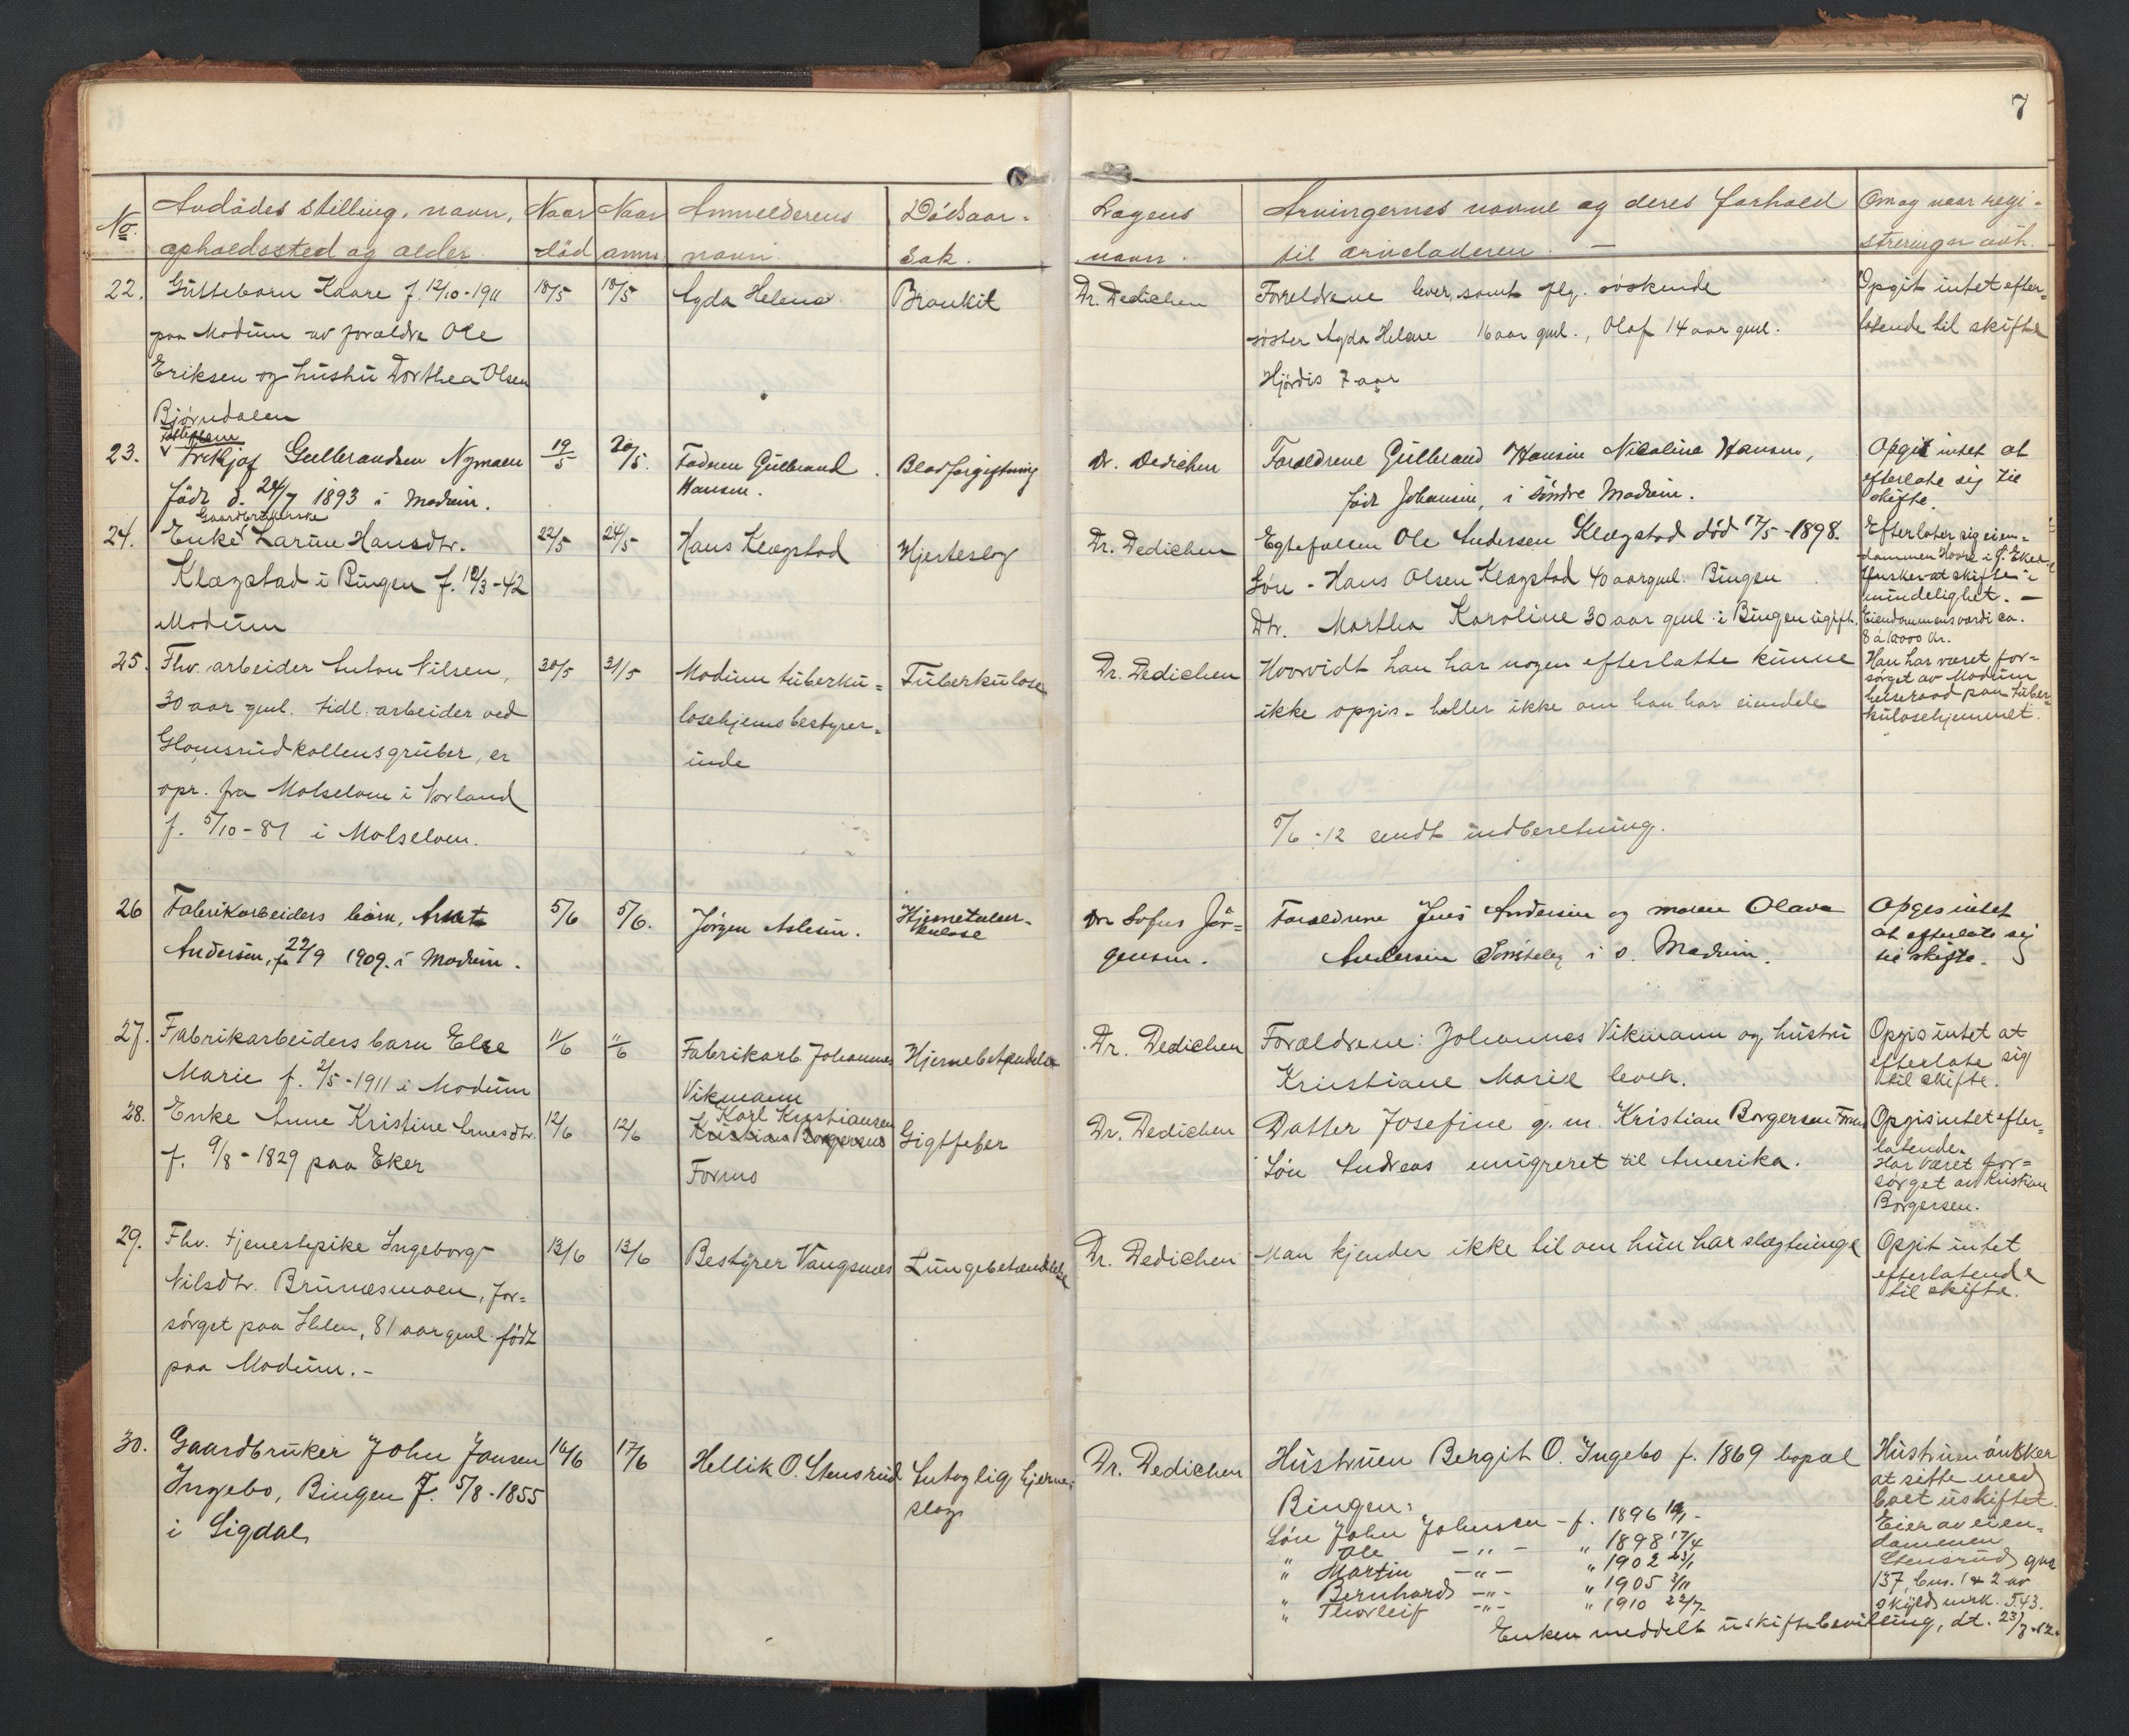 7
No.
Avdödes stilling, navn,
opholdssted og alder
Naar
död
Naar
anm.
Anmelderens
navn
Dödsaar-
sak.
Lægens
navn.
Arvingernes navne og deres forhold
til arveladeren. —
Om og naar regi-
strering er avh.
22.
Guttebarn Kaare f. 12/10-1911
paa Modum av forældre Ole
Eriksen og hustru Dorthea Olsen
Björndalen
18/5
18/5
Agda Helene
Bronkit
Dr. Dedichen
Foreldrene lever, samt flg. söskende
söster Agda Helene 16 aar gml., Olaf 14 aar gml.
Hjördis 7 aar
Opgit intet efter-
latende til skifte
23.
Fritjof Gulbrandsen Nymoen
födt d. 24/7 1893 i Modum.
19/5
20/5.
Faderen Gulbrand
Hansen.
Blodforgiftning
Dr. Dedichen
Foreldrene Gulbrand Hansen Nicoline Hansen,
födt Johansen, i söndre Modum.
Opgit intet at
efterlate sig til
skifte.
24.
Gaardbrukerske
Enke Larine Hansdtr.
Klægstad i Bingen f. 12/3-42
Modum
22/5
24/5
Hans Klægstad
Hjerteslag
Dr. Dedichen
Egtefællen Ole Andersen Klægstad död 17/5-1898.
Sön - Hans Olsen Klægstad 40 aar gml. Bingen
Dtr. Marthea Karoline 30 aar gml. i Bingen ugift.
Efterlater sig eien-
dommen Hoore i Ö. Eker.
Ønsker at skifte i
mindelighet. —
Eiendommens værdi ca.
8 à 10000 kr.
25.
Fhv. arbeider Anton Nilsen,
30 aar gml. tidl. arbeider ved
Glomsrudkollens gruber, er
opr. fra Molselven i Norland
f. 5/10-81 i Molselven.
30/5
31/5
Modum tuberku-
losehjems bestyrer-
inde
Tuberkulose
Dr. Dedichen
Hvorvidt han har nogen efterlatte kunne
ikke opgis - heller ikke om han har eiendele
5/6-12 sendt indberetning.
Han har været for-
sörget av Modum
helseraad paa tuber-
kulosehjemmet.
26
Fabrikarbeiders barn, Arnt
Andersen, f. 22/9 1909. i Modum.
5/6
5/6.
Jörgen Aslesen.
Hjernetuber-
kulose
Dr. Sofus Jör-
gensen.
Foreldrene Jens Andersen og moren Olava
Andersen i s. Modum.
Opges intet
at efterlate sig
til skifte.
27.
Fabrikarbeiders barn Else
Marie f. 2/5-1911 i Modum
11/6
11/6
Fabrikarb. Johannes
Vikmann
Hjernebetændelse
Dr. Dedichen
Forældrene: Johannes Vikmann og hustru
Kristiane Marie lever.
Opgis intet at
efterlate sig
til skifte.
28.
Enke Anne Kristine Arnesdtr.
f. 9/8-1829 paa Eker
12/6
12/6
Karl Kristiansen
Kristian Borgersens
Formo
Gigtfeber
Dr. Dedichen
Datter Josefine g. m. Kristian Borgersen Formo
Sön Andreas emigreret til Amerika.
Opgis intet efter-
latende.
Har været for-
sörget av Kristian
Borgersen.
29.
Fhv. tjenestepike Ingeborg
Nilsdtr. Brunesmoen, for-
sörget paa Ihlen, 81 aar gml. födt
paa Modum.-
13/6
13/6
Bestyrer Vangsnes
Lungebetændelse
Dr. Dedichen
Man kjender ikke til om hun har slægtninge
Opgit intet
efterlatende
til skifte.
30.
Gaardbruker John Jonsen
Ingebo, Bingen F. 5/8-1855
i Sigdal
16/6
17/6
Hellik O. Stensrud
Antagelig hjerne-
slag
Dr. Dedichen
Hustruen Bergit O. Ingebo f. 1869 bopæl
Bingen:
Sön John Johnsen - f. 1896 19/1-
" Ole -"- " 1898 17/4
" Martin -"- " 1902 23/1
" Bernhard -"- " 1905 3/11
" Thorleif -"- " 1910 22/7-
Hustruen önsker
at sitte med
boet uskiftet.
Eier av eien-
dommen
Stensrud gnr
137, bnr. 1 & 2 av
skyld mrk. 5.43.
Enken meddelt uskiftebevilling, dt. 23/7-12.